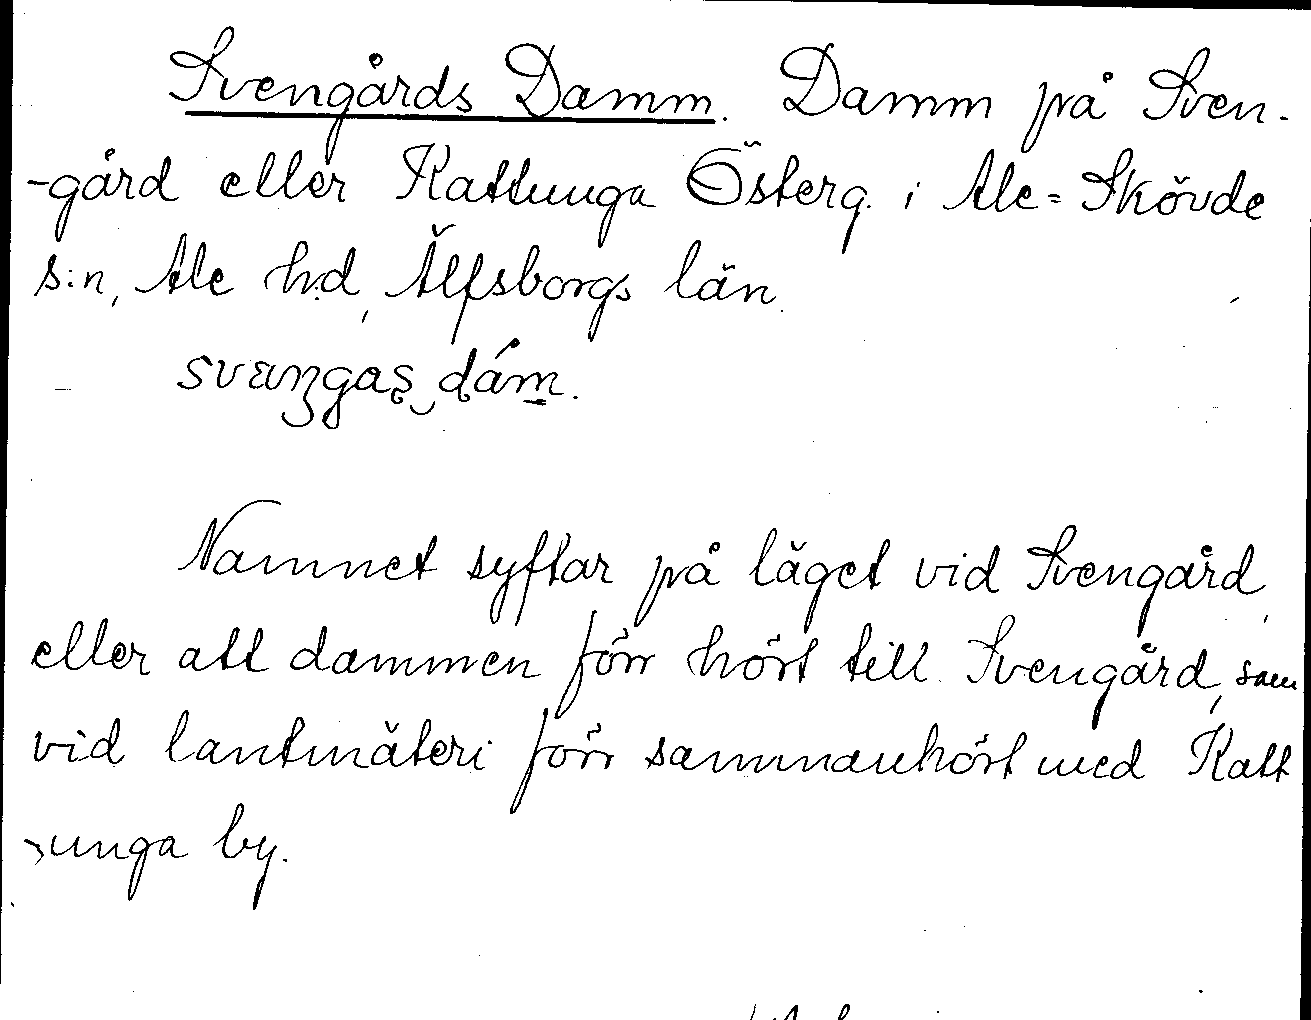 Svengårds Damm. Damm på Sven-
-gård eller Kattunga Österg. i Ale=Skövde
s:n, Ale h:d, Älfsborgs län.
Namnet syftar på läget vid Svengård,
eller att dammen förr hört till Svengård, som
vid lantmäteri förr sammanhört med Katt
unga by.